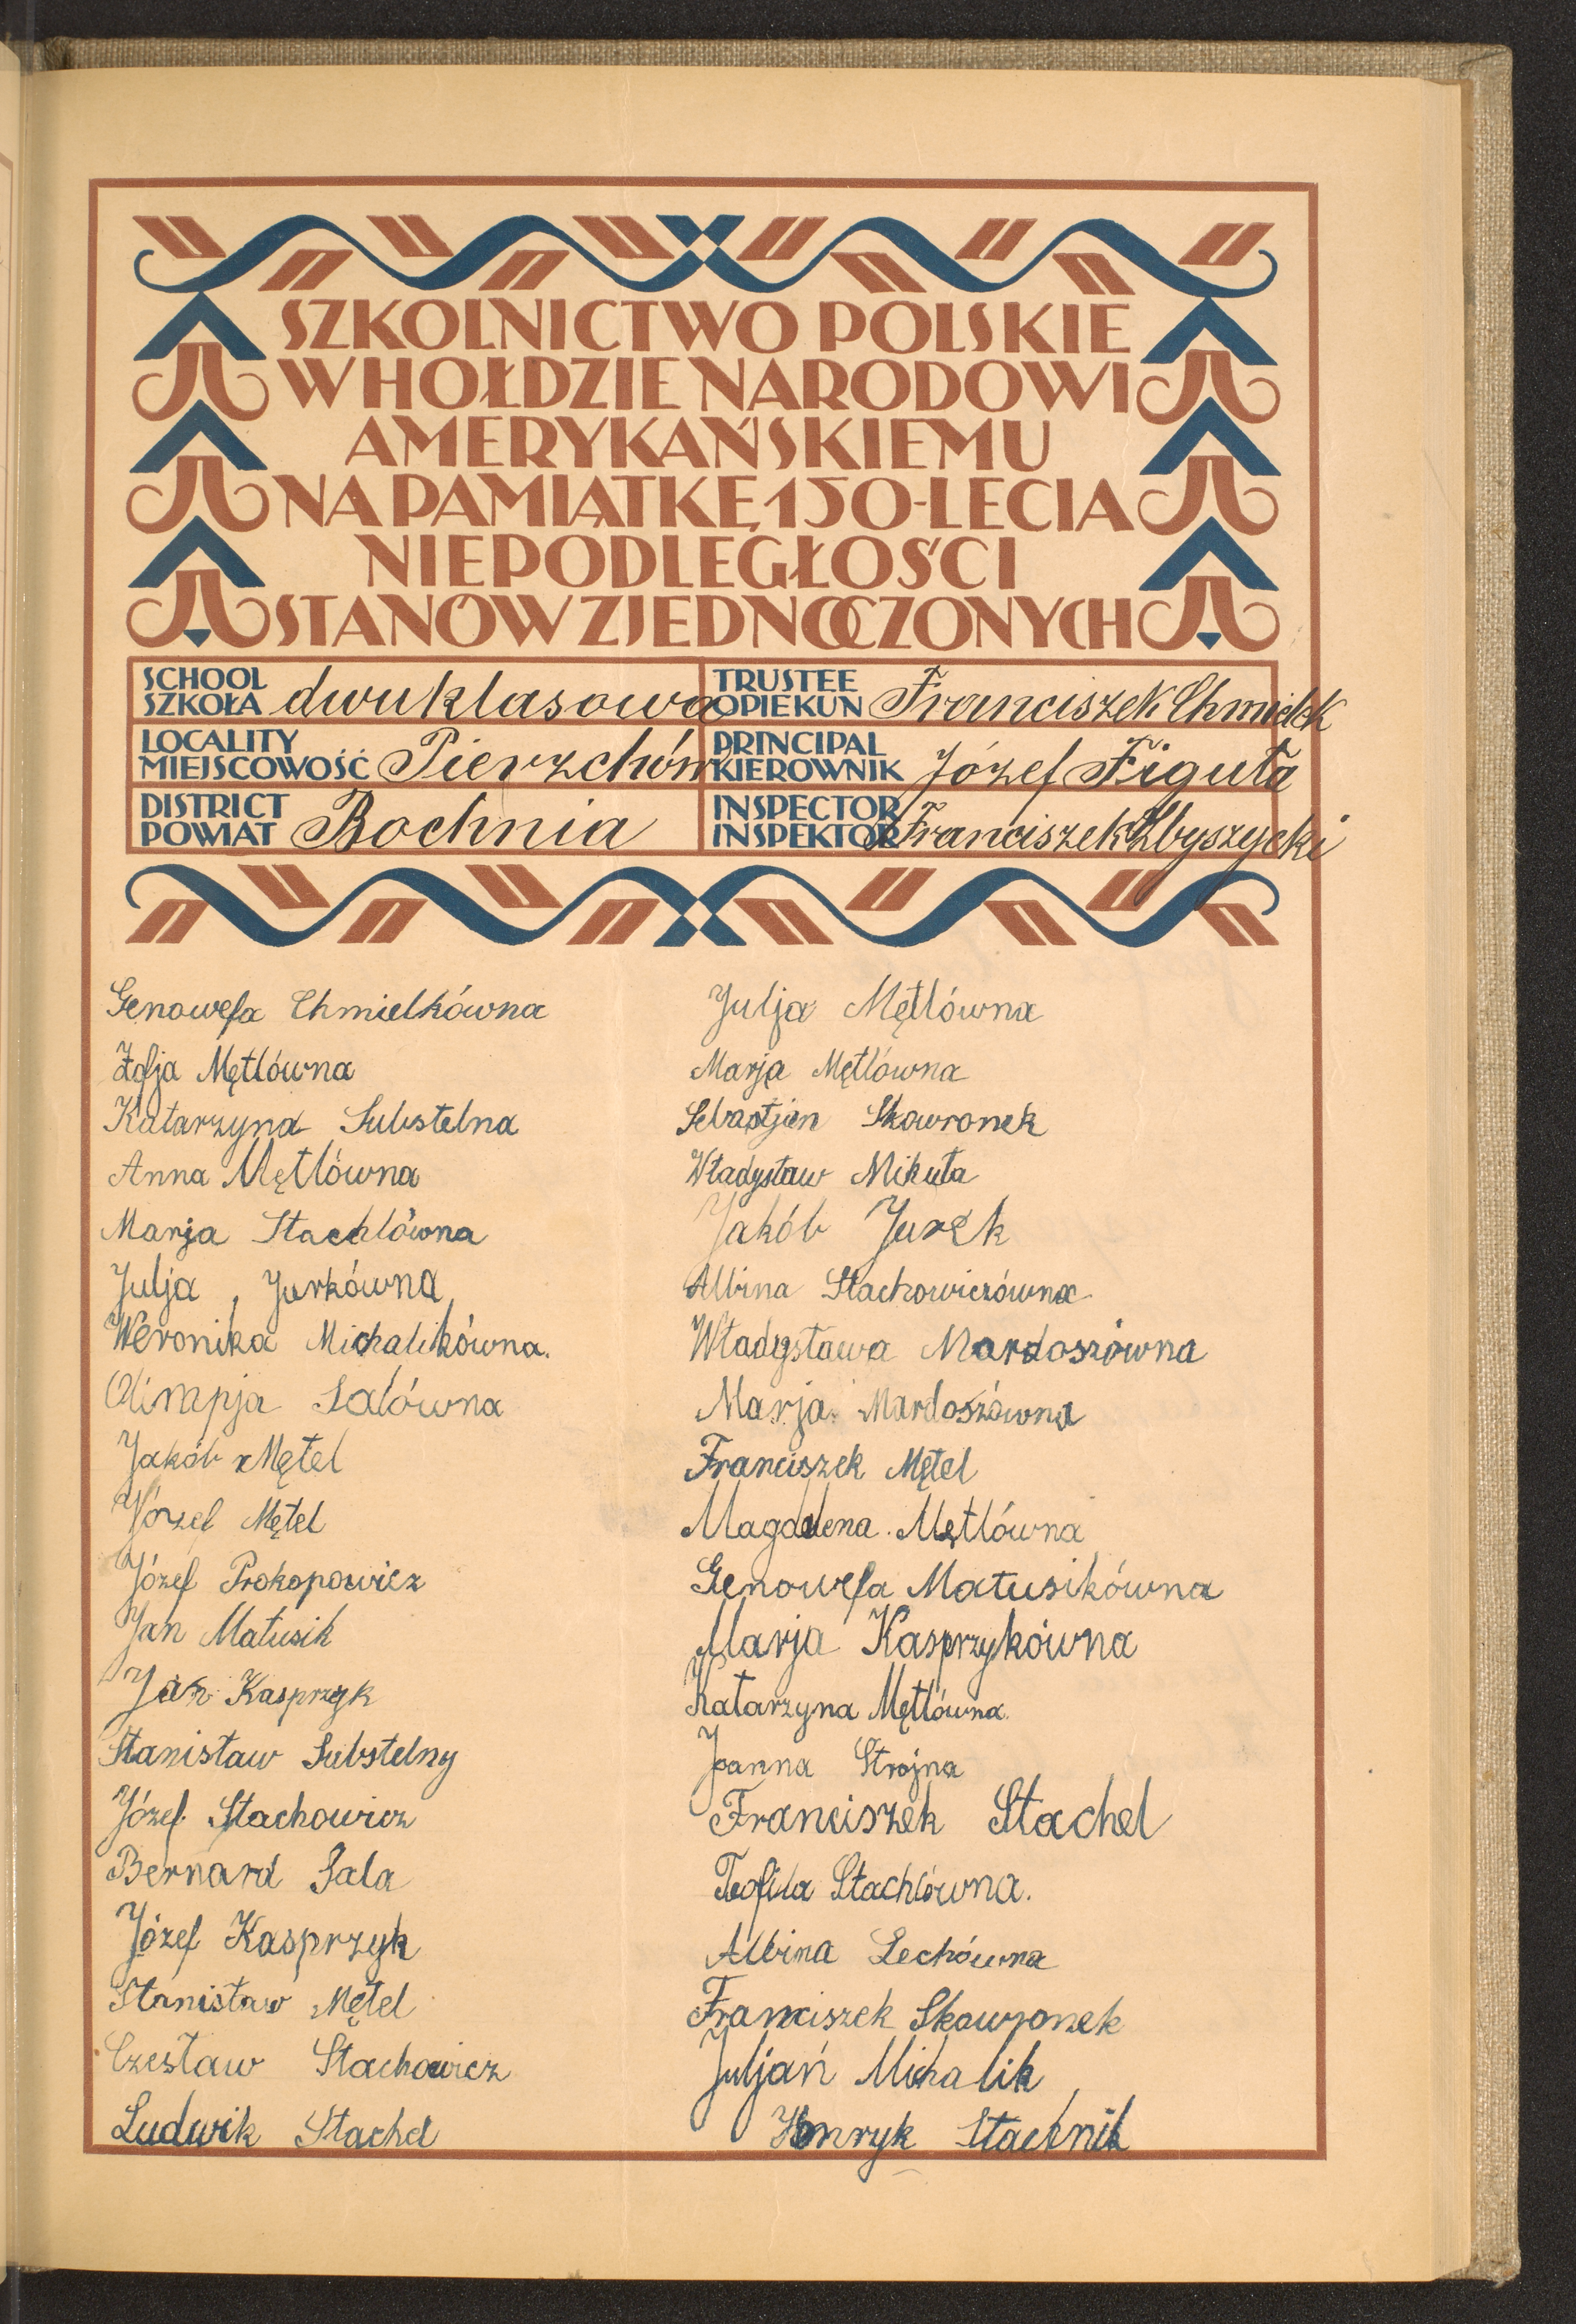 SZKOLNICTWO POLSKIE
W HOŁDZIE NARODOWI
AMERYKAŃSKIEMU
NA PAMIĄTKĘ 150-LECIA
NIEPODLEGŁOŚCI
STANÓW ZJEDNOCZONYCH
SCHOOL
SZKOŁA dwuklasowa
TRUSTEE
OPIEKUN Franciszek Chmielek
LOCALITY
MIEJSCOWOŚĆ Pierzchów
PRINCIPAL
KIEROWNIK Józef Figuła
DISTRICT
POWIAT Bochnia
INSPECTOR
INSPEKTOR Franciszek Zbyszycki
Genowefa Chmielkówna
Zofja Mętlówna
Katarzyna Substelna
Anna Mętlówna
Marja Stachlówna
Julja Jurkówna
Weronika Michalikówna.
Olimpja Salówna
Jakób Mętel
Józef Mętel
Józef Prokopowicz
Jan Matusik
Jan Kasprzyk
Stanisław Substelny
Józef Stachowicz
Bernard Sala
Józef Kasprzyk
Stanisław Mętel
Czesław Stachowicz
Ludwik Stachel
Julja Mętlówna
Marja Mętlówna
Sebastjan Skowronek
Władysław Mikuła
Jakób Jurek
Albina Stachowiczówna
Władysława Mardoszówna
Marja Mardoszówna
Franciszek Mętel
Magdalena Mętlówna
Genowefa Matusikówna
Marja Kasprzykówna
Katarzyna Mętlówna.
Joanna Strojna
Franciszek Stachel
Teofila Stachlówna.
Albina Lechówna
Franciszek Skowronek
Juljań Michalik
Henryk Stachnik